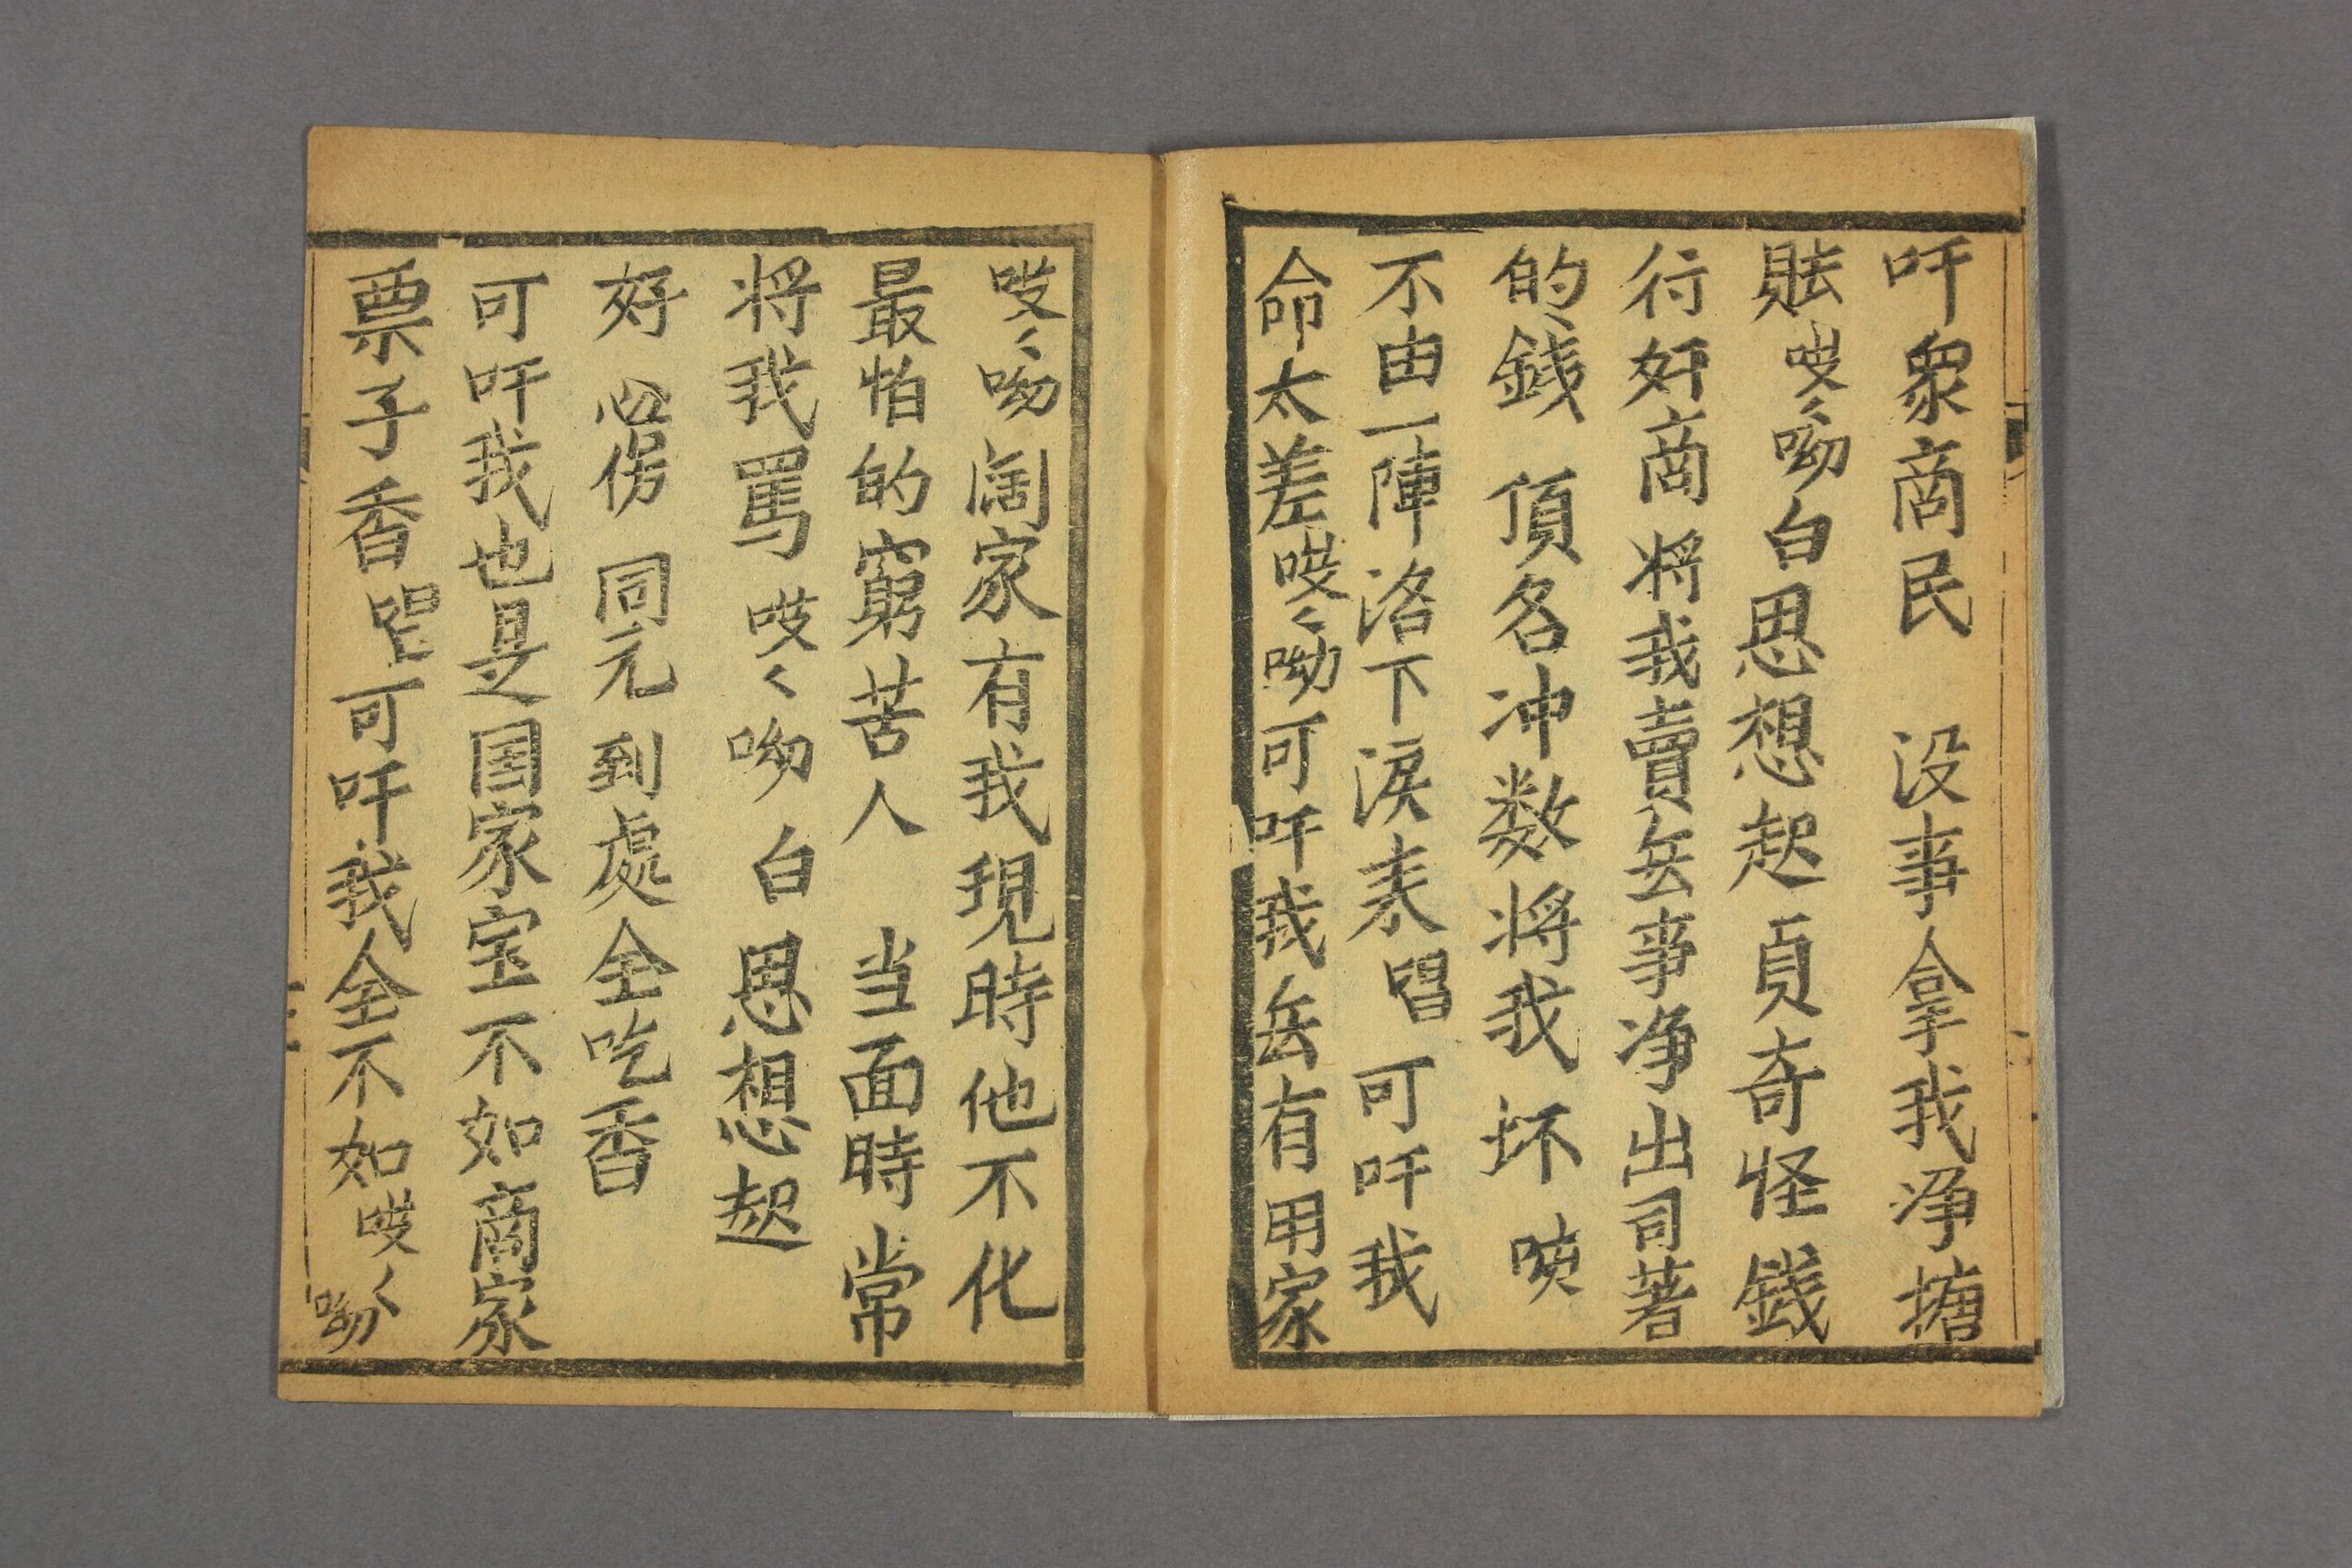 吀衆商民 没事拿我净搪
賬哎〻呦白思想起貞奇怪錢
行奸商将我賣岳事净出司著
的錢 頂名冲数将我坏 唝
不由一陣洛下淚来唱 可吀我
命太差哎〻呦可吀我岳有用家
哎〻呦闊家有我現時他不化
最怕的窮苦人 当面時常
将我罵 哎〻呦 白 思想起
好 心傍 同元到處全吃香
可吀我也是国家宝不如商家
票子香唱可吀我全不如哎〻呦